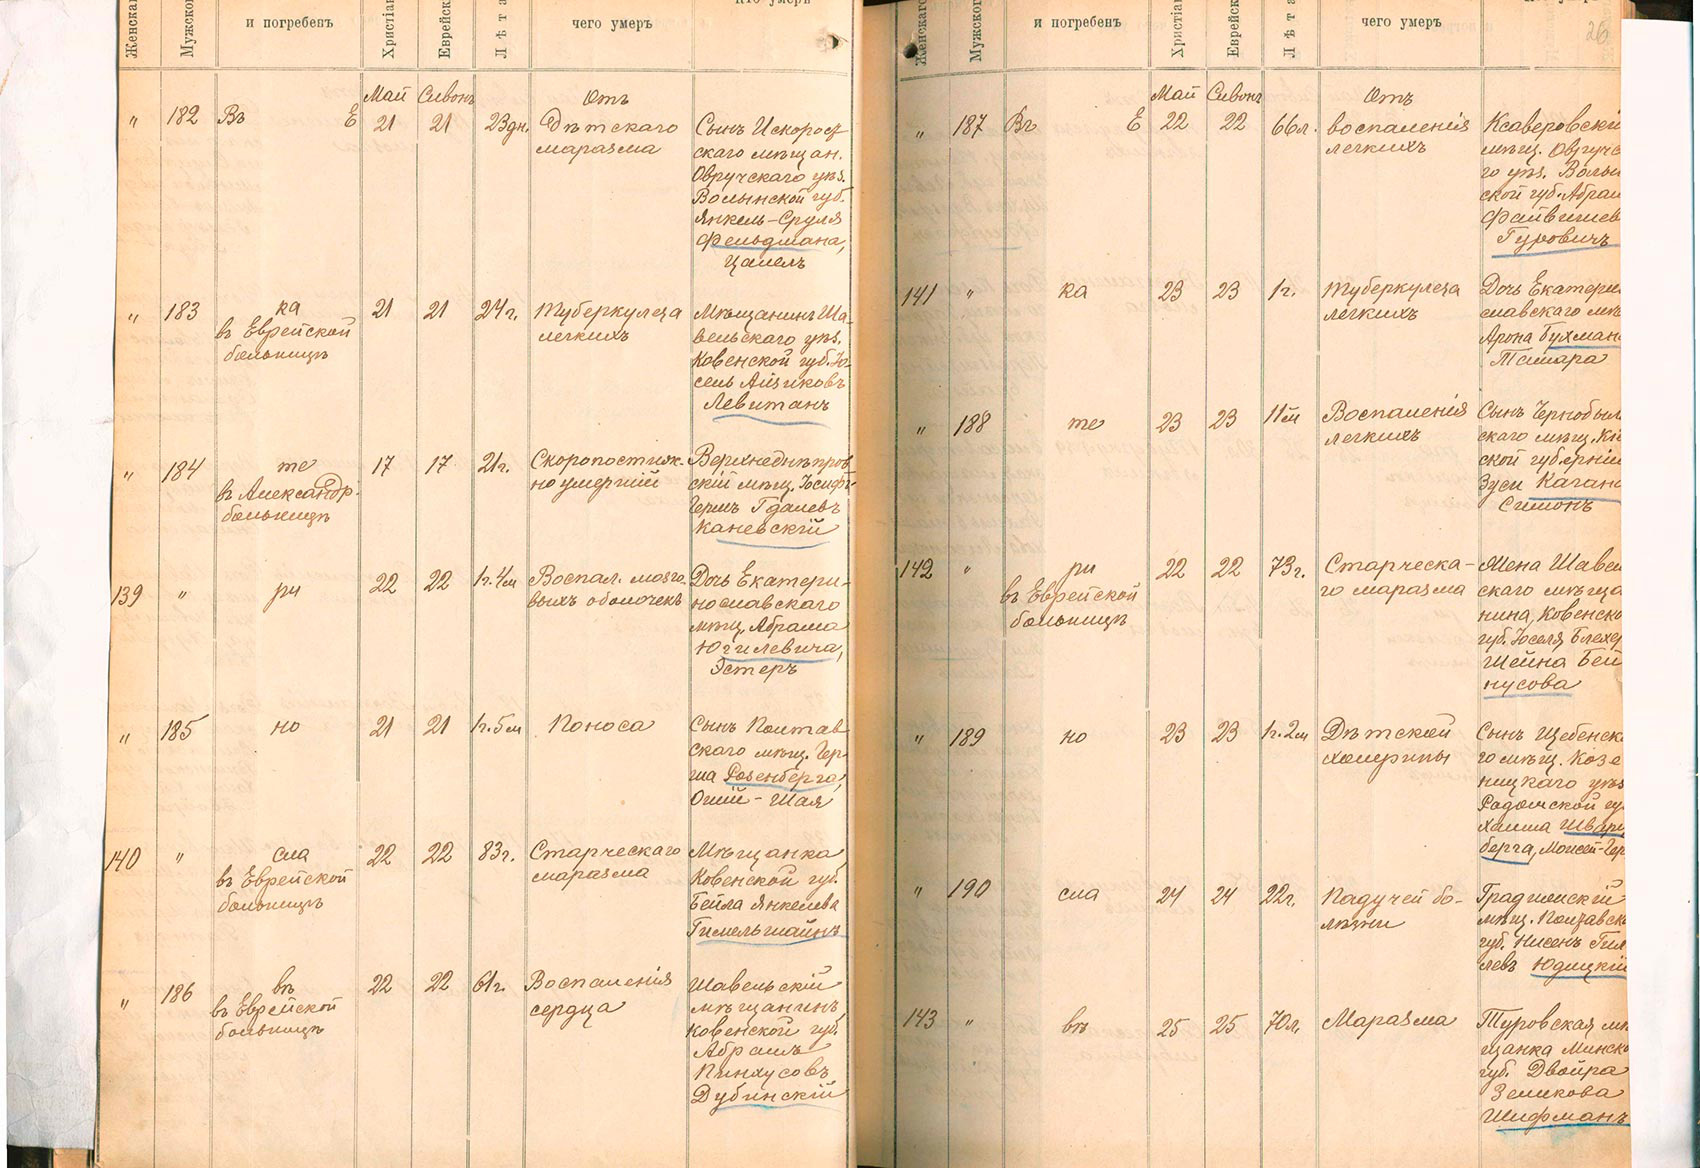 Женскаго
Мужского
и погребенъ
Христіан
Еврейск
Лѣта
чего умеръ
Кто умеръ
Май Сивонъ Отъ
„ 182 Въ Е 21 21 23дн. Дѣтскаго
маразма
Сынъ Искорост
скаго мѣщан.
Овручскаго уѣз.
Волынской губ.
Янкель-Сруля
Фельдмана,
Цалелъ
„ 183 ка 21 21 24г. Туберкулеза
въ Еврейской легкихъ
больницѣ
Мѣщанинъ Ша-
вельскаго уѣз.
Ковенской губ. Іо-
сель Айзиковъ
Левитанъ
„ 184 те 17 17 21г. Скоропостиж-
въ Александр. но умершій
больницѣ
Верхнеднѣпров
скій мѣщ. Іосифъ-
Гершъ Гдалевъ
Каневскій
139 „ ри 22 22 1г.4м Воспал. мозго-
выхъ оболочекъ
Дочь Екатери-
нославскаго
мѣщ. Абрама
Югилевича,
Эстеръ
„ 185 но 21 21 1г.5м Поноса
Сынъ Полтав
скаго мѣщ. Гер-
ша Розенберга,
Шая
140 „ сла 22 22 83г. Старческаго
въ Еврейской маразма
больницѣ
Мѣщанка
Ковенской губ.
Бейла Янкелева
Гимельшайнъ
„ 186 вѣ 22 22 61г. Воспаленія
въ Еврейской сердца
больницѣ
Шавельскій
мѣщанинъ
Ковенской губ.
Абрамъ
Пинхусовъ
Дубинскій
26
Женскаго
Мужского
и погребенъ
Христіан
Еврейск
Лѣта
чего умеръ
Май Сивонъ Отъ
„ 187 Въ Е 22 22 66л. воспаленія
легкихъ
Ксаверовскій
мѣщ. Овручс
го уѣз. Волын
ской губ. Абрам
Файвишев
Гуровичъ
141 „ ка 23 23 1г. Туберкулеза
легкихъ
Дочь Екатерин
славскаго мѣщ
Арона Бухман
Тамара
„ 188 те 23 23 11м Воспаленія
легкихъ
Сынъ Чернобыл
скаго мѣщ. Кі
ской губерніи
Зуси Каган
Симонъ
142 „ ри 22 22 73г. Старческа-
въ Еврейской го маразма
больницѣ
Жена Шавел
скаго мѣща
нина, Ковенско
губ. Іоселя Блехер
Шейна Бей
нусова
„ 189 но 23 23 1г.2м Дѣтской
холерины
Сынъ Щебенск
го мѣщ. Козе
ницкаго уѣз
Радомской гу
Хаима Шварц
берга, Моисей-Гер
„ 190 сла 24 24 22г. Падучей бо-
лѣзни
Градижскій
мѣщ. Полтавск
губ. Нисенъ Гил
левъ Юдицкій
143 „ вѣ 25 25 70л. Маразма
Туровская мѣ
щанка Минско
губ. Двойра
Зеликова
Шифманъ